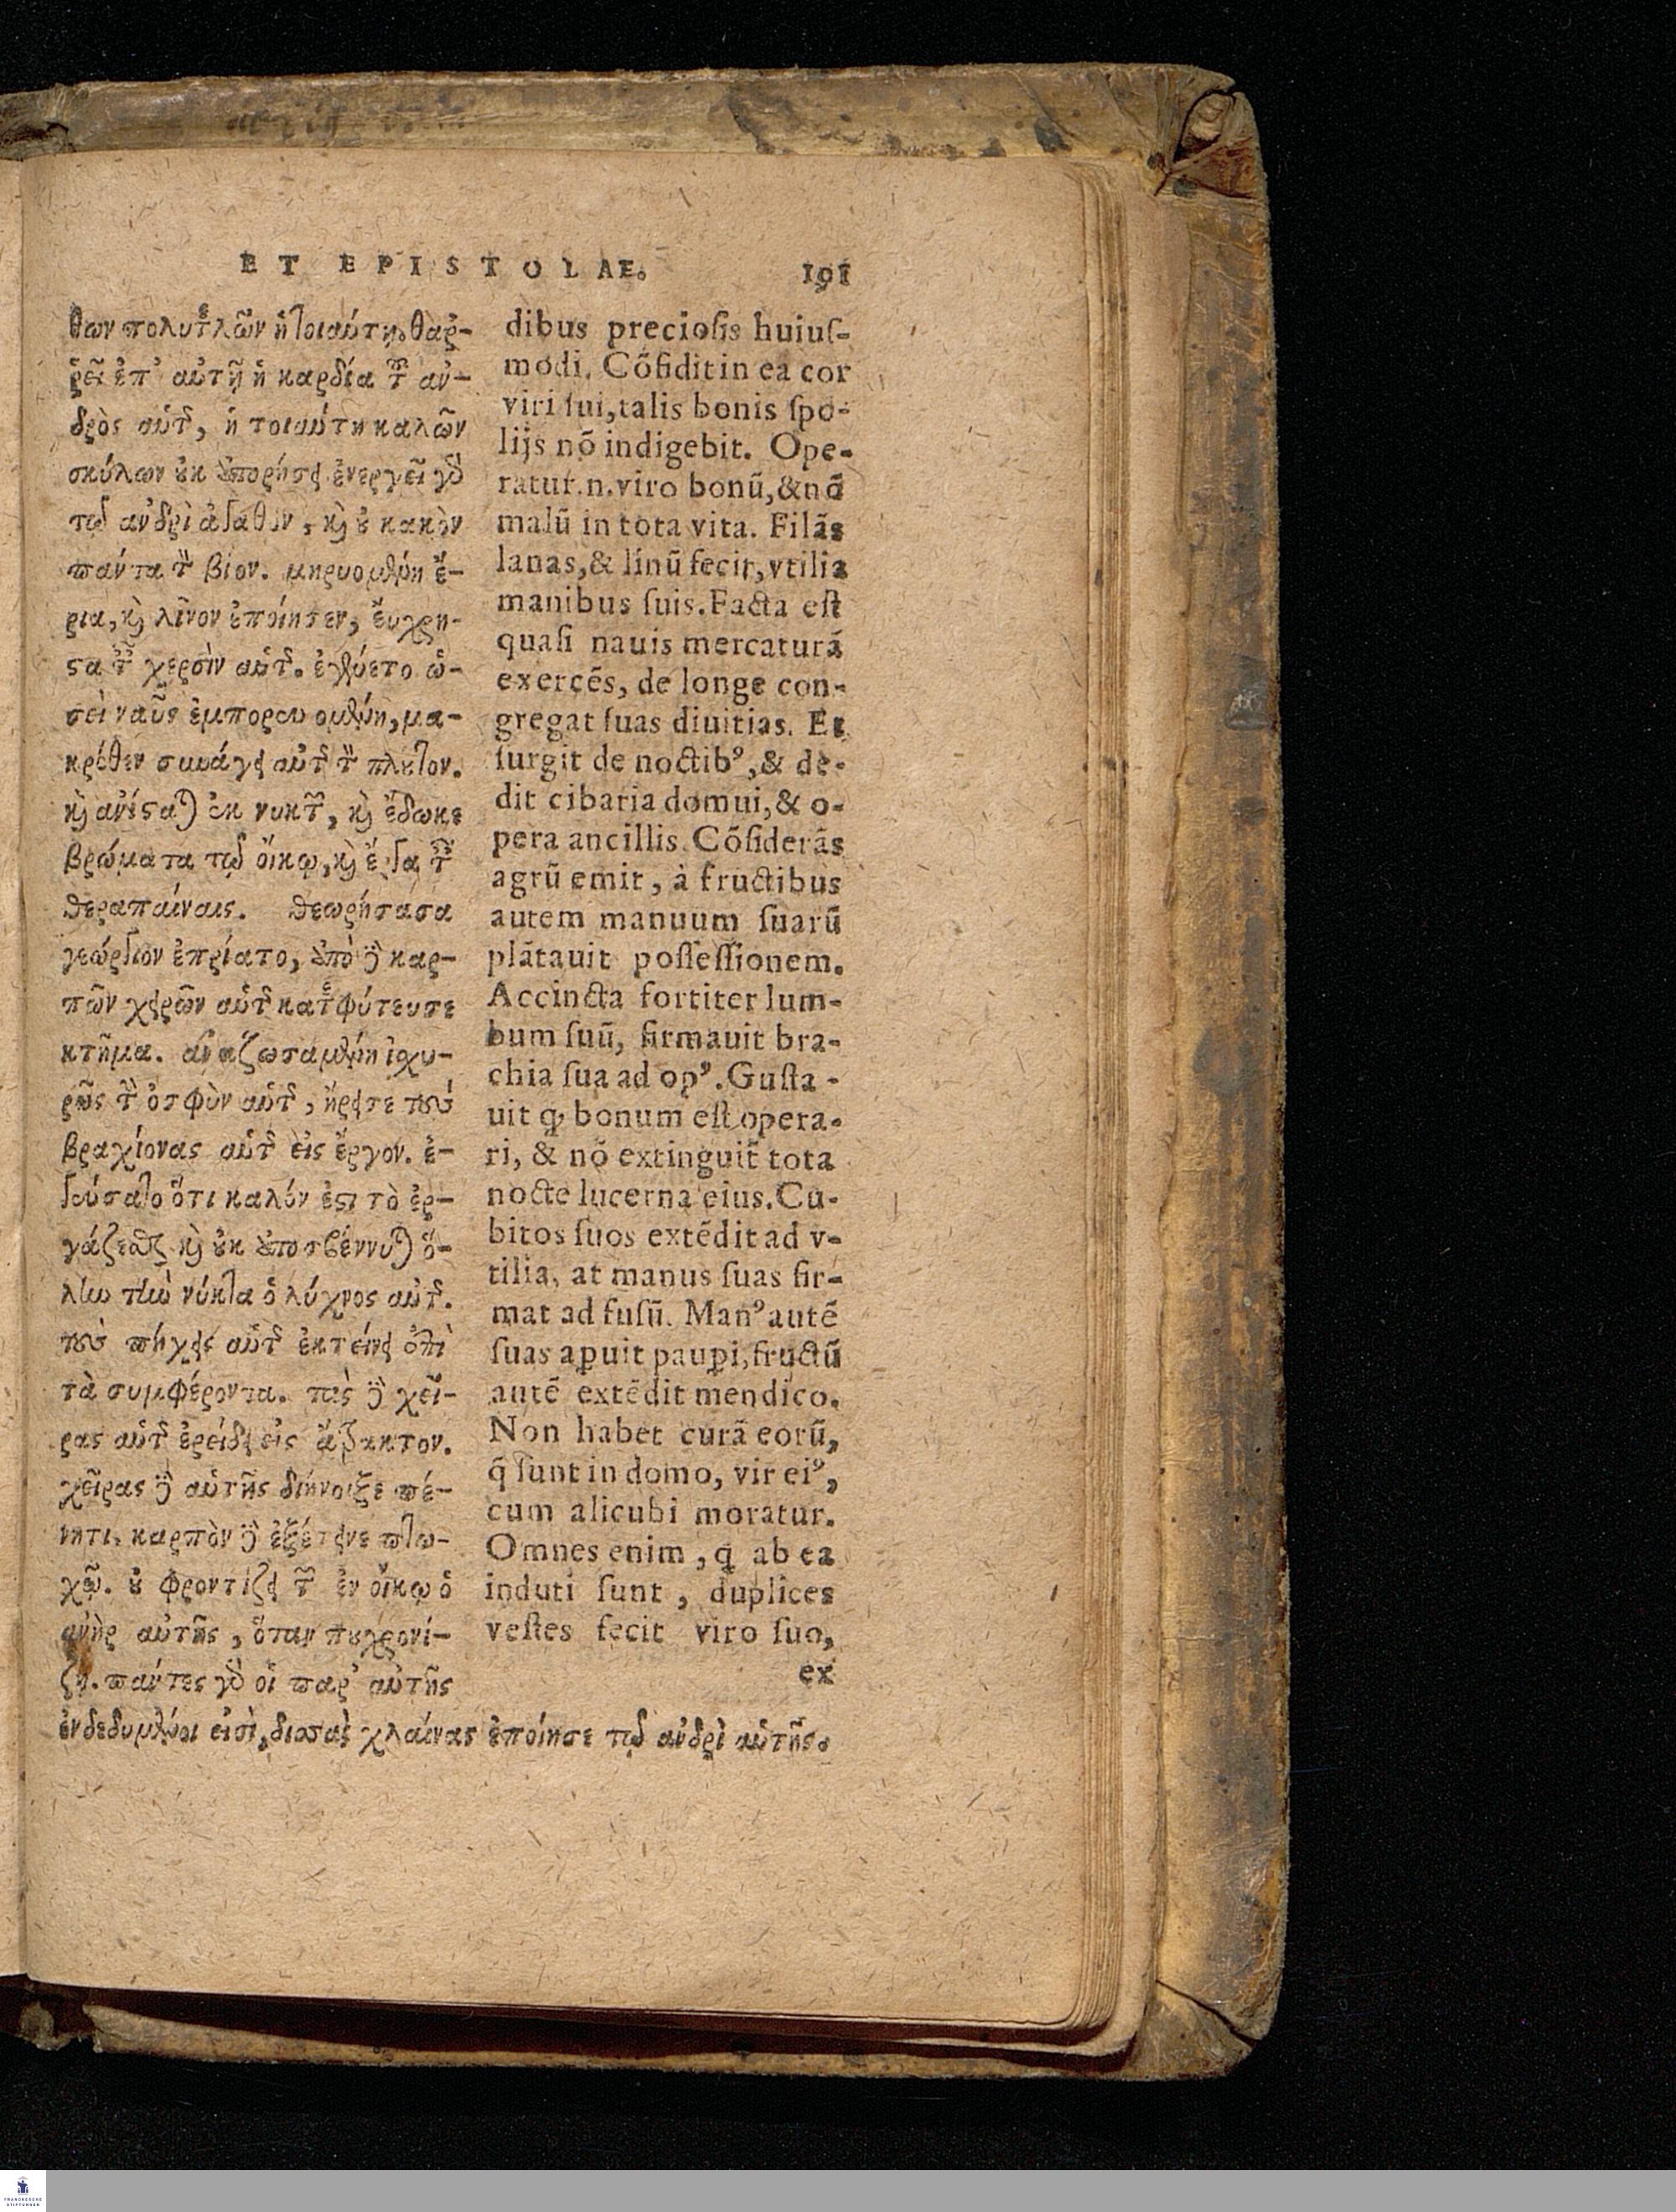 ET EPISTOLAE. 191
θων πολυτελῶν ἡ τοιαύτη. θαρ-
ρεῖ ἐπ' αὐτῇ ἡ καρδία τοῦ ἀν-
δρὸς αὑτῆς, ἡ τοιαύτη καλῶν
σκύλων οὐκ ἀπορήσει ἐνεργεῖ γὰρ
τῷ ἀνδρὶ ἀγαθὸν, καὶ οὐ κακὸν
πάντα τὸν βίον. μηρυομένη ἔ-
ρια, καὶ λῖνον ἐποίησεν, εὔχρη-
στα ταῖς χερσὶν αὑτῆς. ἐγένετο ὡ-
σεὶ ναῦς ἐμπορευομένη, μα-
κρόθεν συνάγει αὑτῆς τὸν πλοῦτον.
καὶ ἀνίσταται ἐκ νυκτῶν, καὶ ἔδωκε
βρώματα τῷ οἴκῳ, καὶ ἔργα ταῖς
θεραπαίναις. θεωρήσασα
γεώργιον ἐπρίατο, ἀπὸ δὲ καρ-
πῶν χειρῶν αὑτῆς κατεφύτευσε
κτῆμα. ἀναζωσαμένη ἰσχυ-
ρῶς τὴν ὀσφὺν αὑτῆς, ἤρεισε τοὺς
βραχίονας αὑτῆς εἰς ἔργον. ἐ-
γεύσατο ὅτι καλόν ἐστι τὸ ἐρ-
γάζεσθαι καὶ οὐκ ἀποσβέννυται ὅ-
λην τὴν νύκτα ὁ λύχνος αὐτῆς.
τοὺς πήχεις αὑτῆς ἐκτείνει ἐπὶ
τὰ συμφέροντα. τὰς δὲ χεῖ-
ρας αὑτῆς ἐρείδει εἰς ἄτρακτον.
χεῖρας δὲ αὑτῆς διήνοιξε πέ-
νητι, καρπὸν δὲ ἐξέτεινε πτω-
χῷ. οὐ φροντίζει τῶν ἐν οἴκῳ ὁ
ἀνὴρ αὐτῆς, ὅταν που χρονί-
ζῃ. πάντες γὰρ οἱ παρ' αὐτῆς
ἐνδεδυμένοι εἰσὶ, δισσὰς χλαίνας ἐποίησε τῷ ἀνδρὶ αὑτῆς.
dibus preciosis huiuſ-
modi. Cõfidit in ea cor
viri ſui, talis bonis ſpo-
lijs nõ indigebit. Ope-
ratur.n.viro bonũ, & nõ
malũ in tota vita. Filãs
lanas, & linũ fecit, vtilia
manibus ſuis. Facta eſt
quaſi nauis mercaturã
exercẽs, de longe con-
gregat ſuas diuitias. Et
ſurgit de noctibꝰ, & de-
dit cibaria domui, & o-
pera ancillis. Cõſiderãs
agrũ emit, à fructibus
autem manuum ſuarũ
plãtauit poſſeſſionem.
Accincta fortiter lum-
bum ſuũ, firmauit bra-
chia ſua ad opꝰ. Guſta-
uit ꝙ bonum eſt opera-
ri, & nõ extinguit̃ tota
nocte lucerna eius. Cu-
bitos ſuos extẽdit ad v-
tilia, at manus ſuas fir-
mat ad fuſũ. Manꝰ autẽ
ſuas aꝑuit pauꝑi, fructũ
autẽ extẽdit mendico.
Non habet curã eorũ,
q̃ ſunt in domo, vir eiꝰ,
cum alicubi moratur.
Omnes enim, q̃ ab ea
induti ſunt, duplices
veſtes fecit viro ſuo,
ex
FRANCKESCHE
STIFTUNGEN